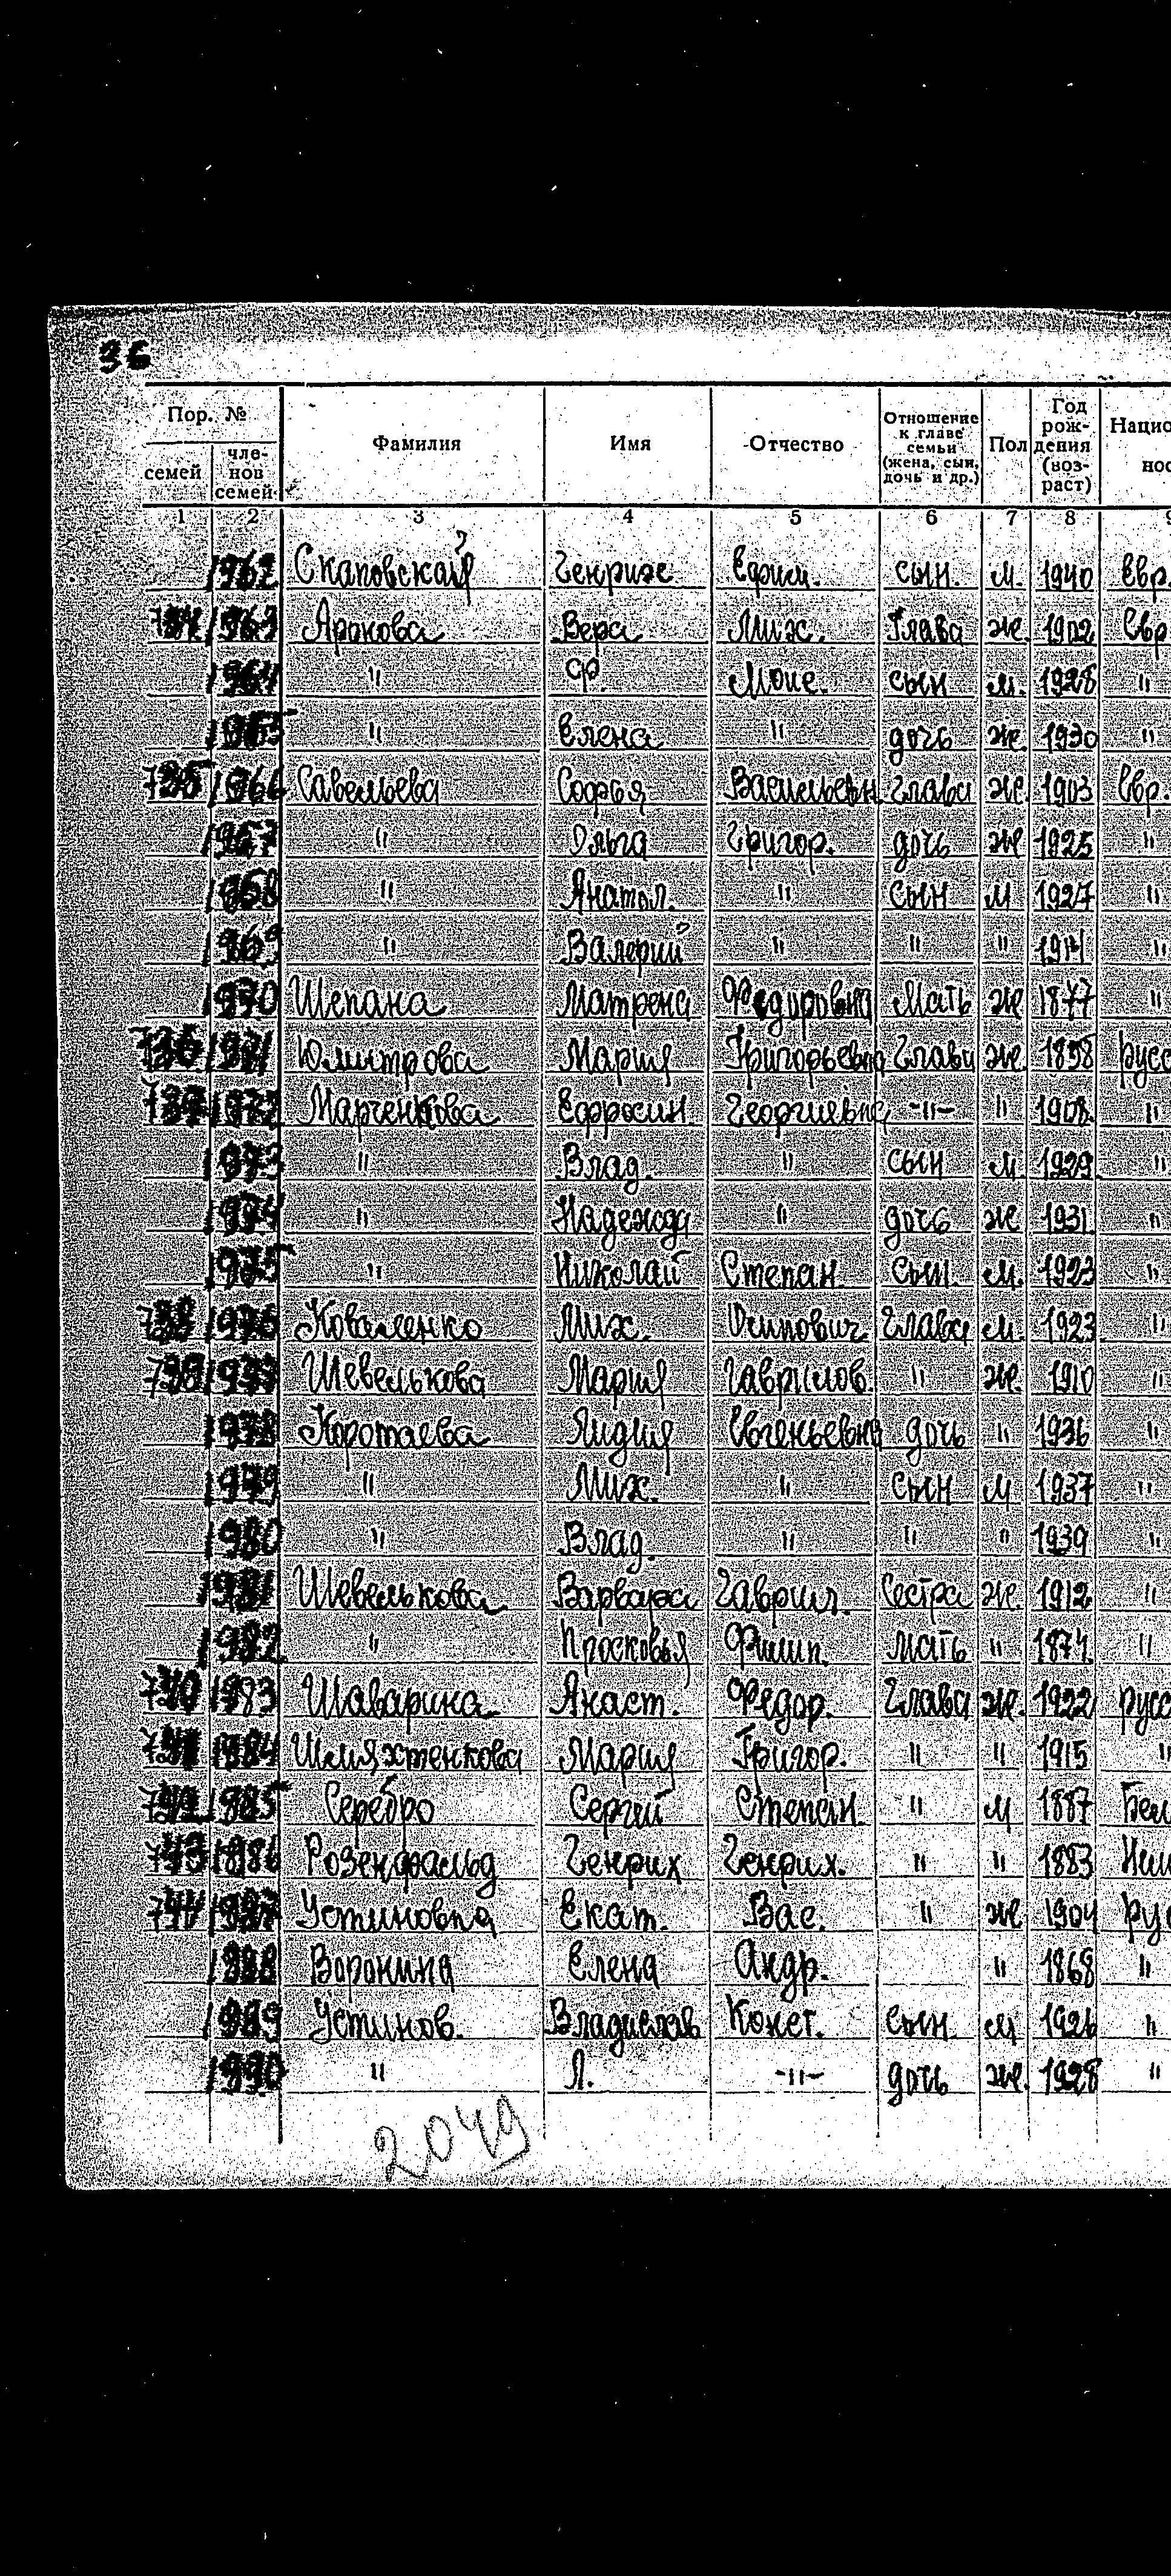 36
Пор. № Фамилия Имя Отчество Отношение к главе семьи (жена, сын, дочь и др.) Пол Год рождения (возраст) Нацио
семей членов семей нос
1 2 3 4 5 6 7 8 9
1962 Скаповская Генрих Ефим. сын. м. 1940 Евр
734 1963 Аронова Вера Мих. Глава ж. 1902 Евр
1964 " Ф. Моис. сын м. 1928 "
1965 " Елена " дочь ж. 1930 "
735 1966 Савельева Софья Васильевн. Глава ж. 1903 Евр.
1967 " Ольга Григор. дочь ж 1925 "
1968 " Анатол. " сын м 1927 "
1969 " Валерий " " " 1941 "
1970 Шепана Матрена Федоровна Мать ж 1877 "
736 1971 Юмитрова Мария Григорьевна Глава ж. 1898 русс
737 1972 Марченкова Ефросин. Георгиевна -"- " 1908 "
1973 " Влад. " сын м 1929 "
1974 " Надежда " дочь ж 1931 "
1975 " Николай Степан. сын. м. 1923 "
738 1976 Коваленко Мих. Осипович Глава м. 1923 "
739 1977 Шевелькова Мария Гаврилов. " ж. 1910 "
1978 Коротаева Лидия Евгеньевна дочь " 1936 "
1979 " Мих. " сын м 1937 "
1980 " Влад. " " " 1939 "
1981 Шевелькова Варвара Гаврил. Сестра ж. 1912 "
1982 " Просковья Филип. мать " 1874 "
740 1983 Шаварина Анаст. Федор. Глава ж. 1922 русс
741 1984 Шляхтенкова Мария Григор. " " 1915 "
742 1985 Серебро Сергей Степан. " м 1887 Бел
743 1986 Розенфальд Генрих Генрих. " " 1883 Нем
744 1987 Устиновна Екат. Вас. " ж 1904 Рус
1988 Воронина Елена Андр. " 1868 "
1989 Устинов. Владислав Конст. сын. м 1926 "
1990 " Л. -"- дочь ж. 1928 "
2049